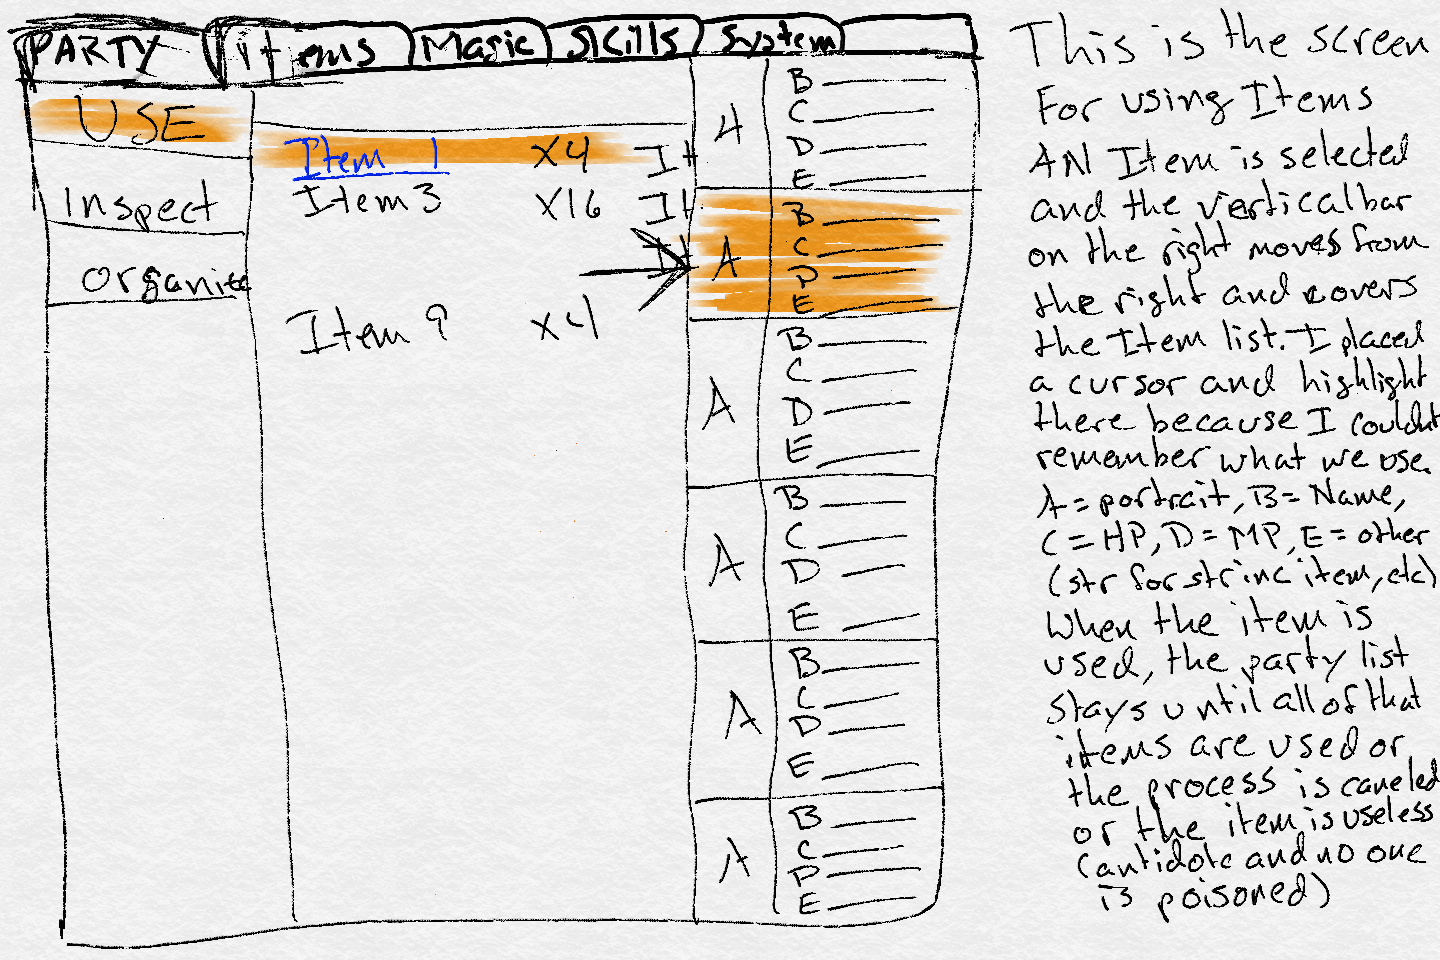 PARTY items Magic Skills System
USE
Inspect
organize
Item 1 X4 It
Item 3 X16 It
It
Item 9 X4
A
B
C
D
E
A
B
C
D
E
A
B
C
D
E
A
B
C
D
E
A
B
C
D
E
A
B
C
D
E
This is the screen
For using Items
AN Item is selected
and the vertical bar
on the right moves from
the right and covers
the Item list. I placed
a cursor and highlight
there because I couldnt
remember what we use.
A = portrait, B = Name,
C = HP, D = MP, E = other
(str for str inc item, etc)
When the item is
used, the party list
stays until all of that
items are used or
the process is canceled
or the item is useless
(antidote and no one
is poisoned)